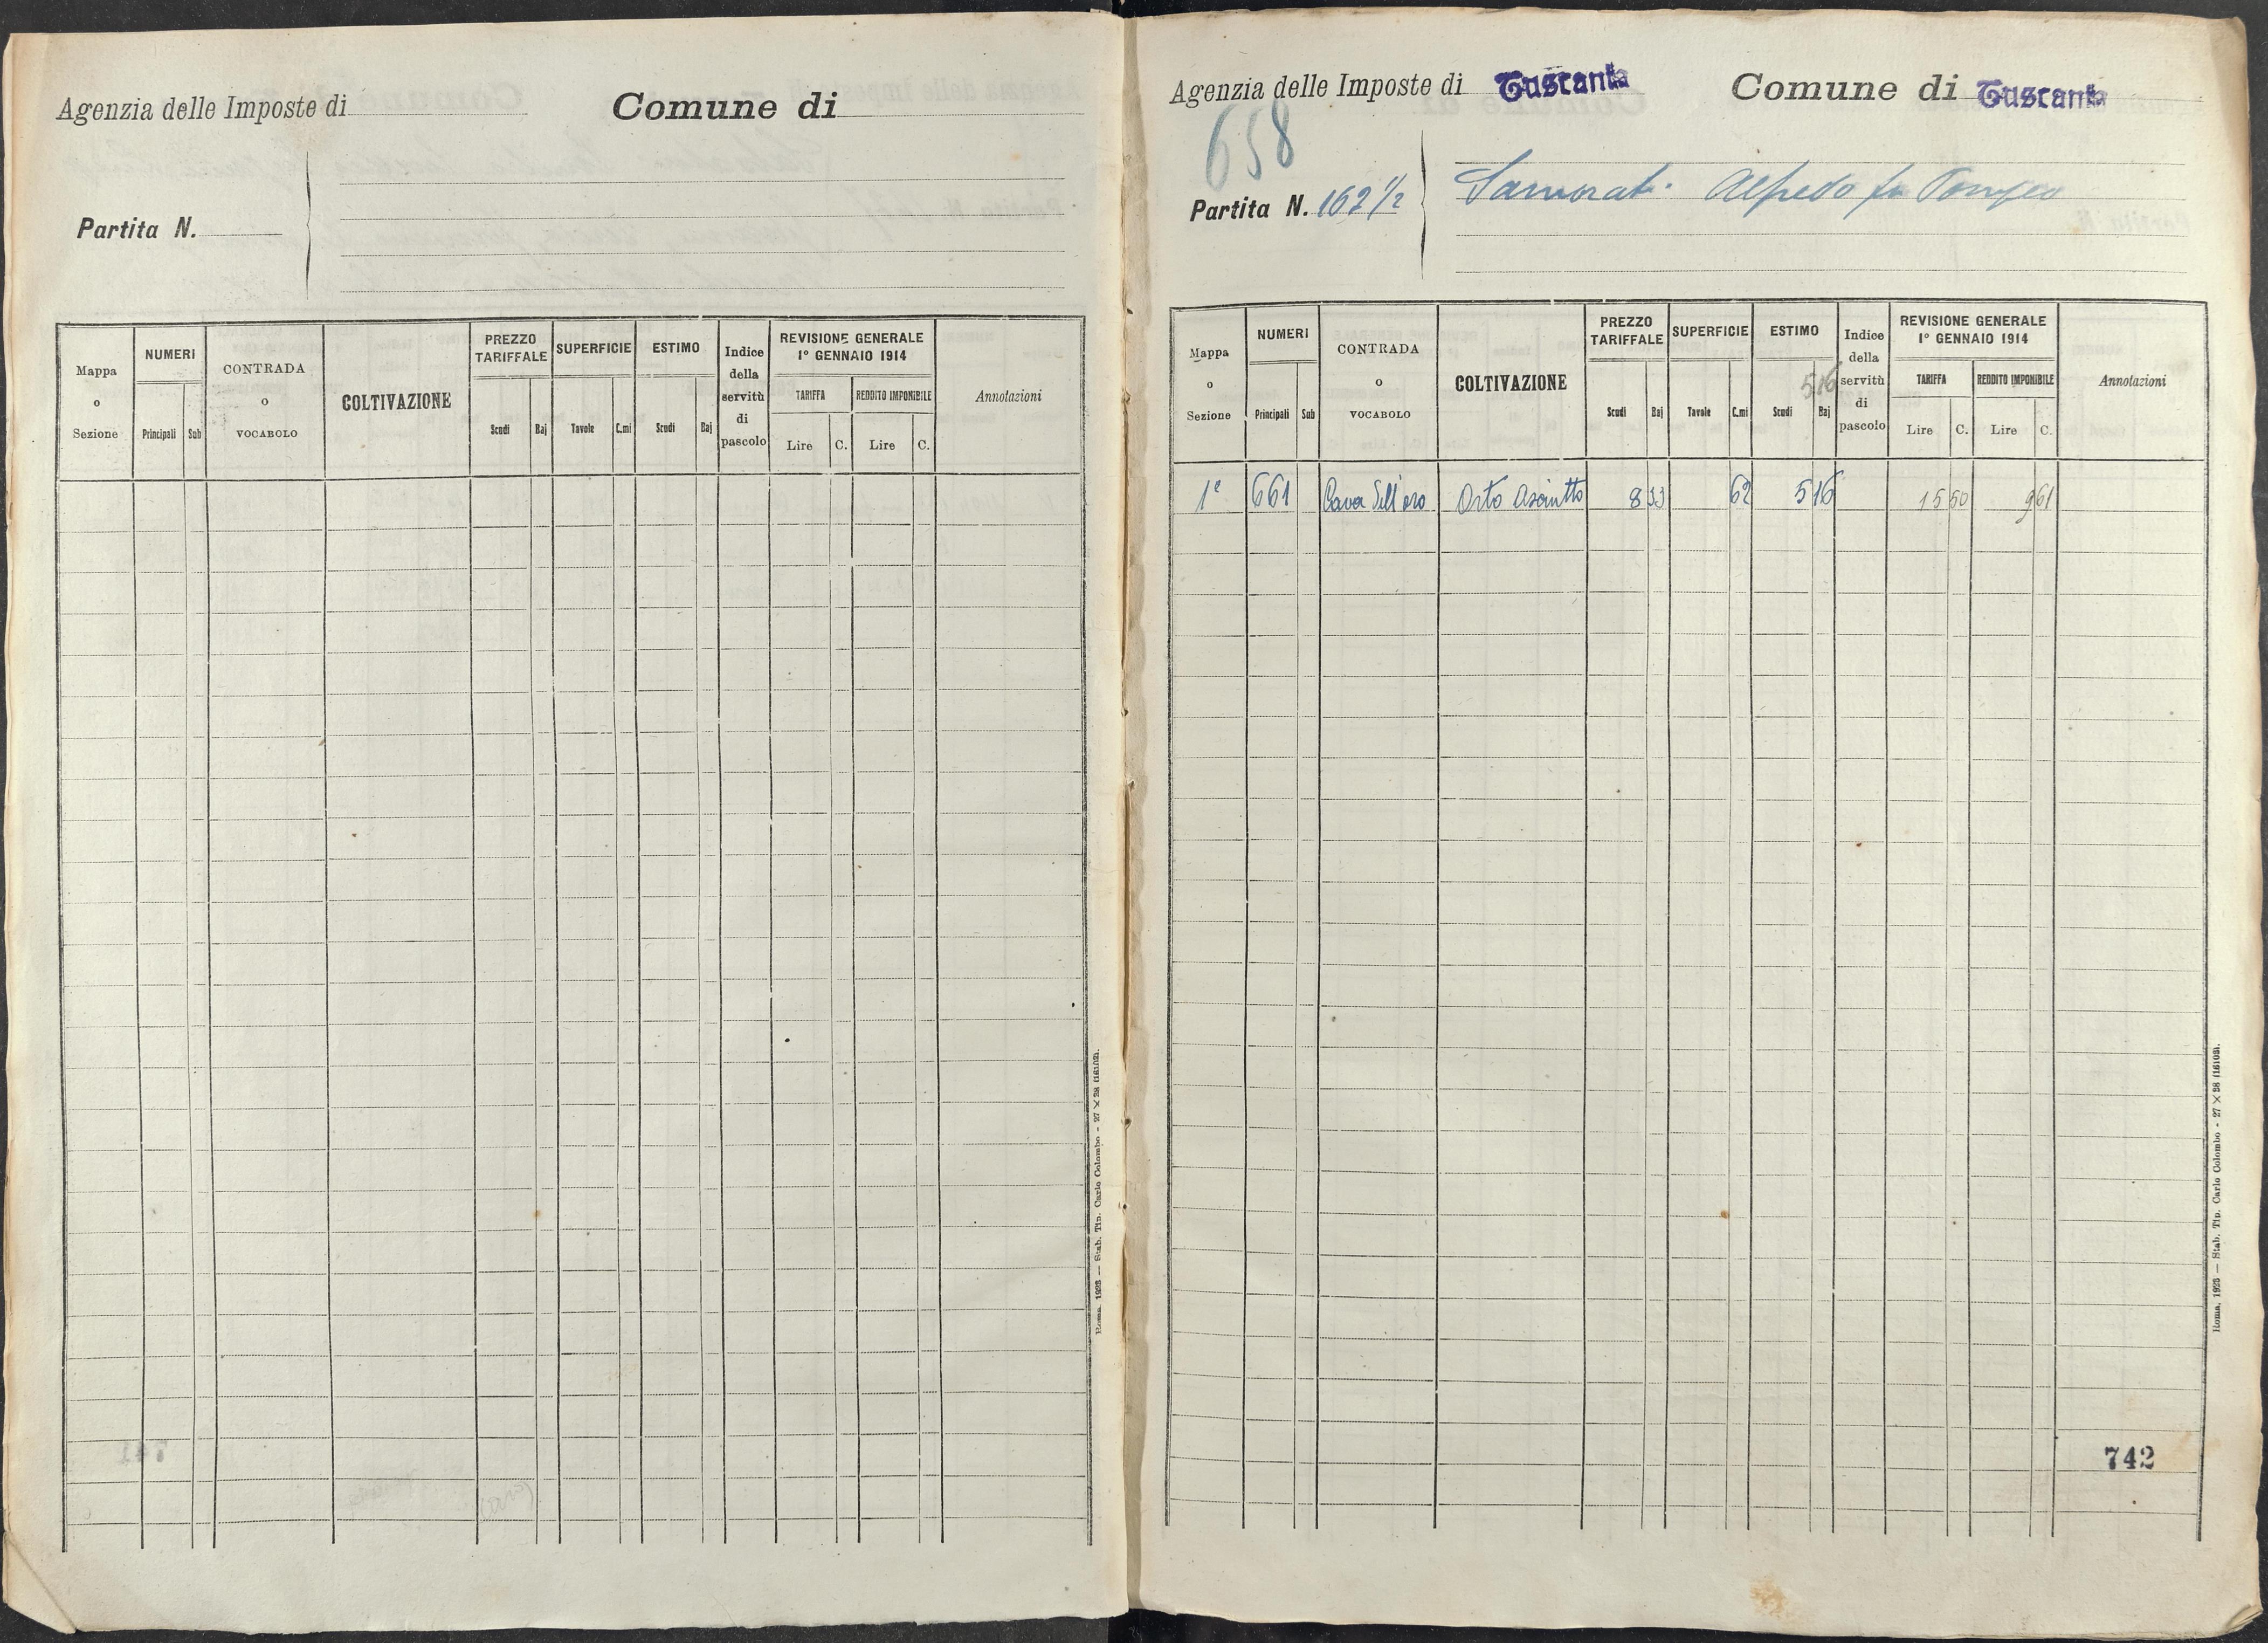 Agenzia delle Imposte di
Comune di
Partita N.
Mappa o Sezione
NUMERI
Principali
Sub
CONTRADA o VOCABOLO
COLTIVAZIONE
PREZZO TARIFFALE
Scudi
Baj
SUPERFICIE
Tavole
C.mi
ESTIMO
Scudi
Baj
Indice della servitù di pascolo
REVISIONE GENERALE
1° GENNAIO 1914
TARIFFA
REDDITO IMPONIBILE
Lire
C.
Lire
C.
Annotazioni
Roma, 1923 — Stab. Tip. Carlo Colombo - 27 × 38 (16103).
Agenzia delle Imposte di Tuscania
Comune di Tuscania
658
Partita N. 162 1/2
Alfredo fu Pompeo
Mappa o Sezione
NUMERI
Principali
Sub
CONTRADA o VOCABOLO
COLTIVAZIONE
PREZZO TARIFFALE
Scudi
Baj
SUPERFICIE
Tavole
C.mi
ESTIMO
516
Scudi
Baj
Indice della servitù di pascolo
REVISIONE GENERALE
1° GENNAIO 1914
TARIFFA
REDDITO IMPONIBILE
Lire
C.
Lire
C.
Annotazioni
1ª 661 Cava dell'oro Orto Asciutto 8 33 62 5 16 15 50 9 61
742
Roma, 1923 — Stab. Tip. Carlo Colombo - 27 × 38 (16103).